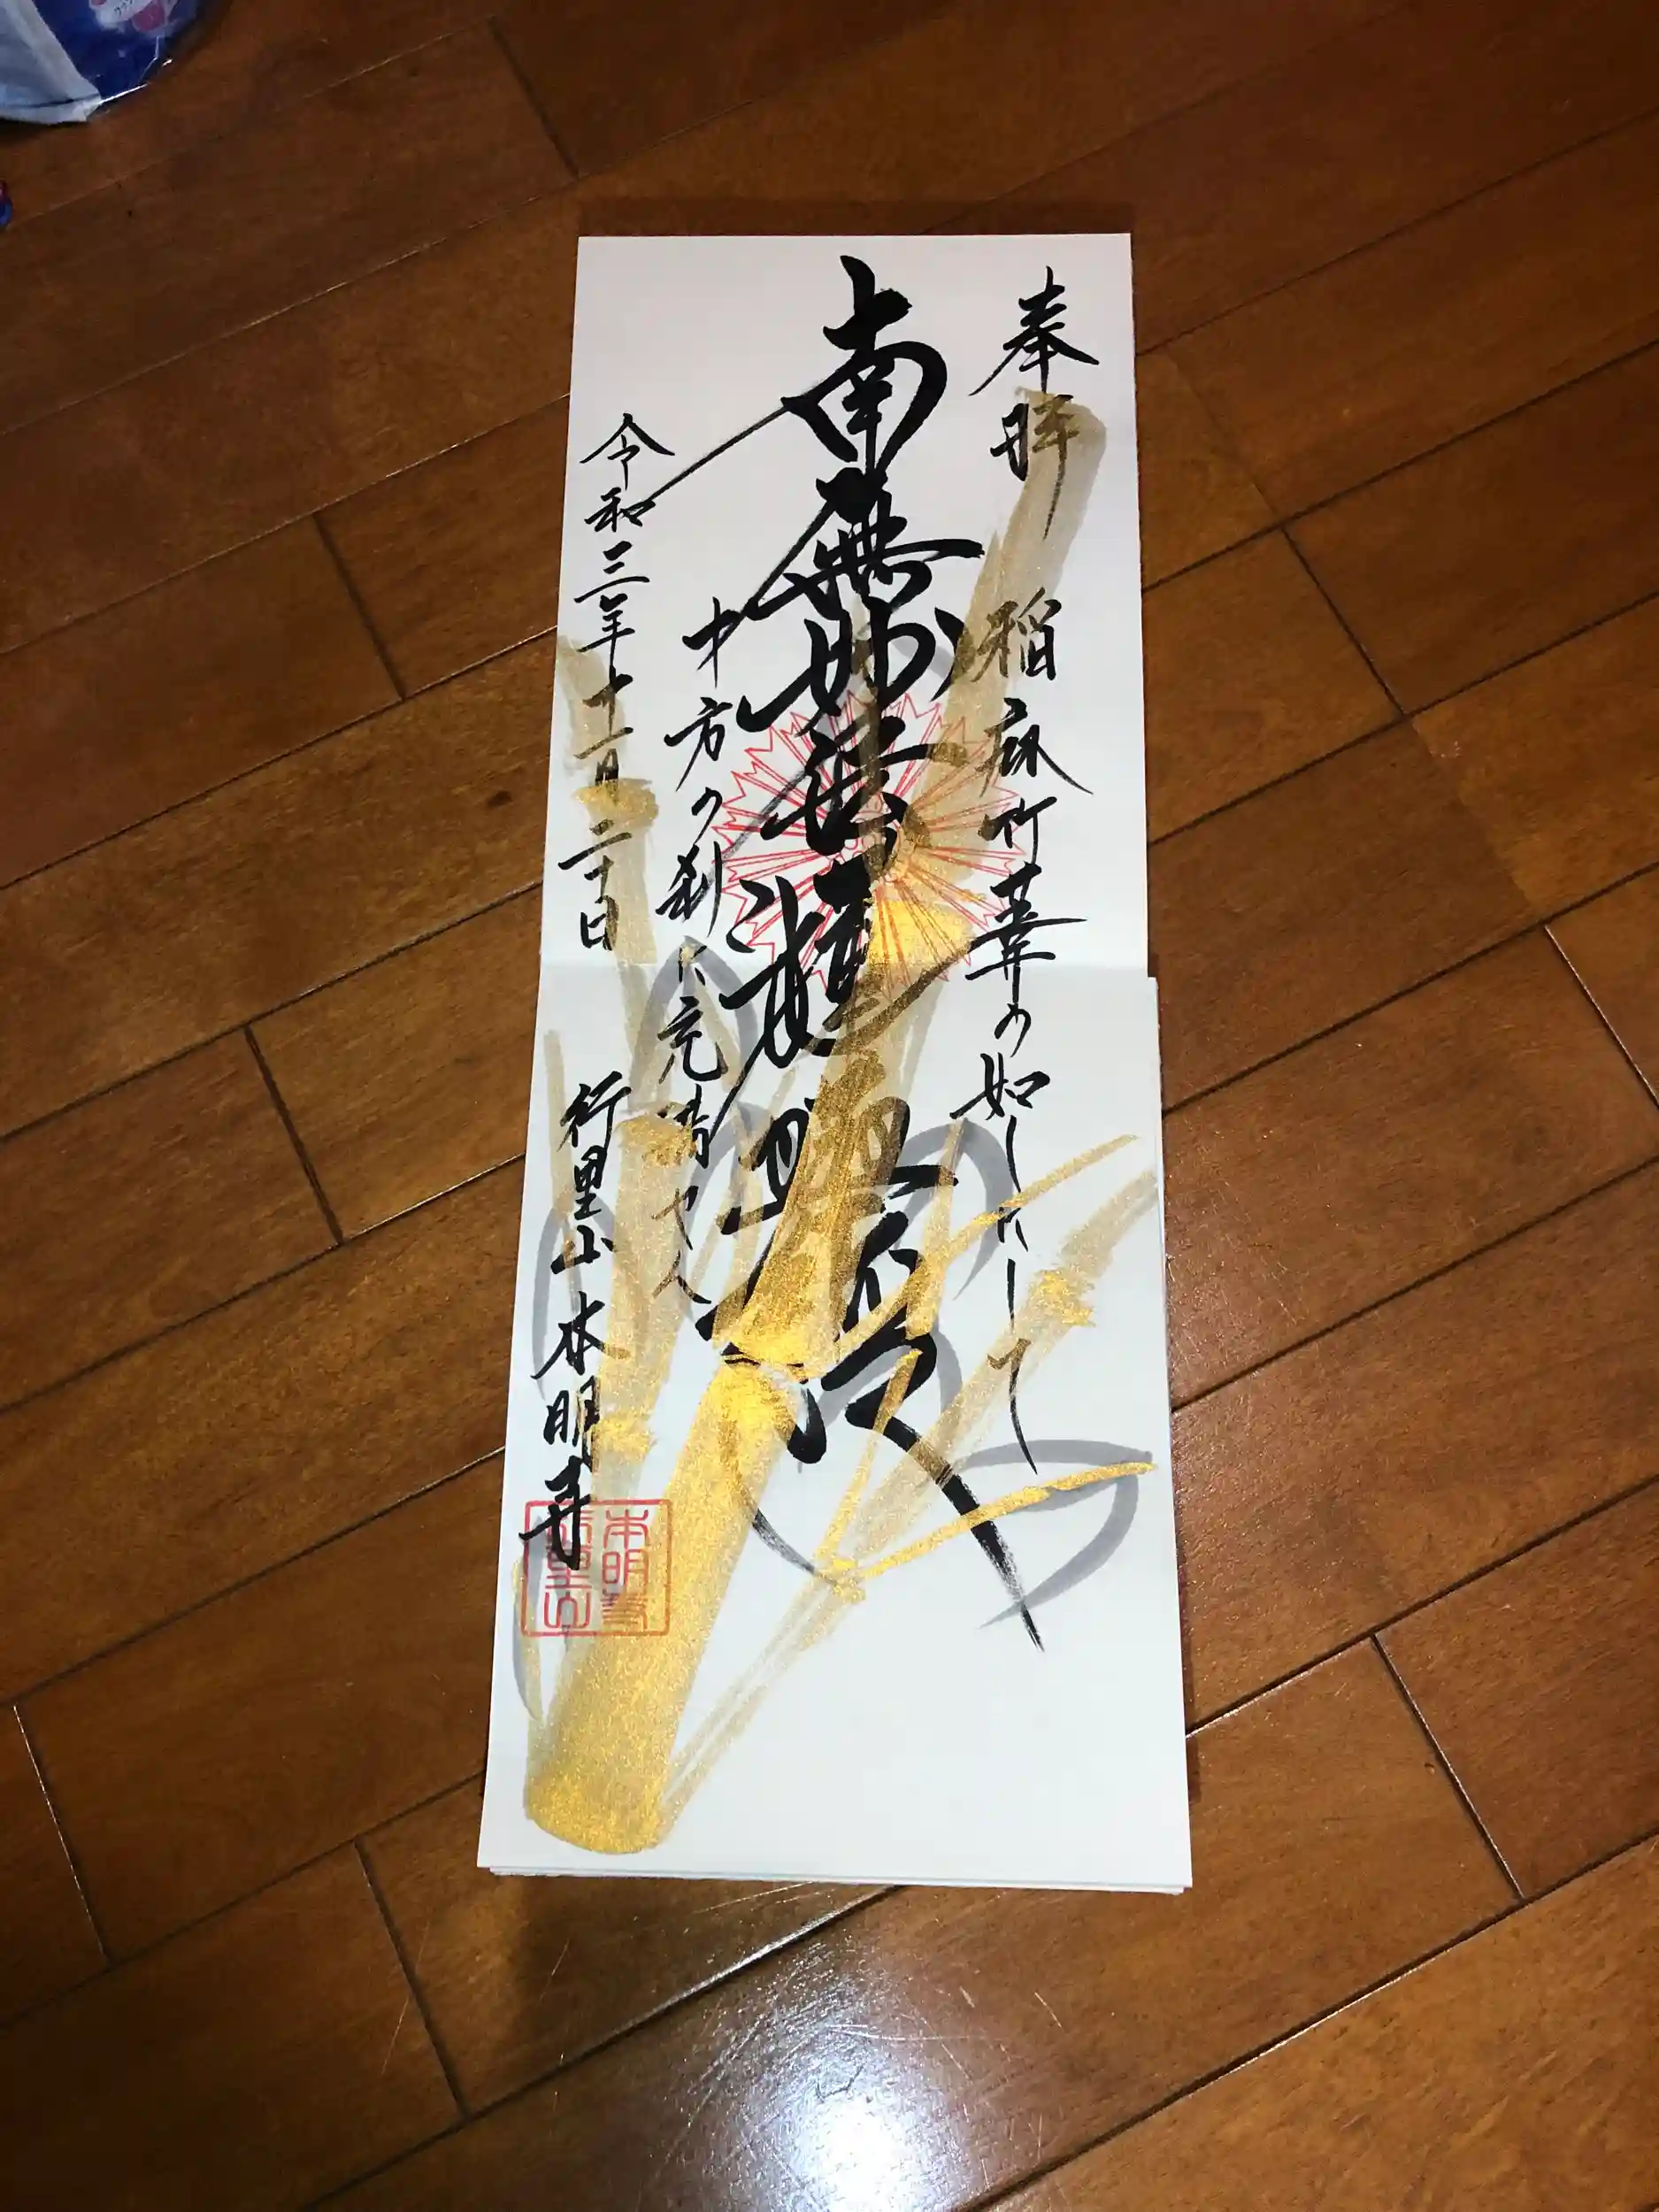 奉拝 稲麻竹葦の如くにして
南無妙法蓮華経
十方の刹に充満せん
令和三年十一月二十日 行里山 本明寺
本明寺